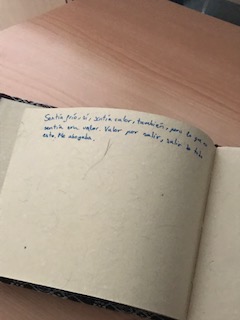 Sentía frío, sí, sentía calor, también, pero lo que no
sentía era valor. Valor por salir, salir de todo
esto. Me ahogaba.